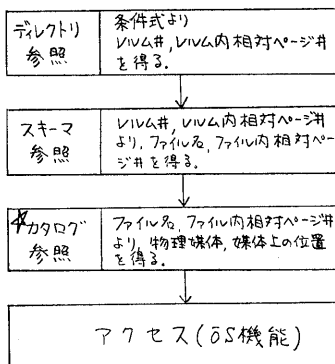 ディレクトリ
参照
条件式より
レルム#,レルム内相対ページ#
を得る.
スキーマ
参照
レルム#,レルム内相対ページ#
より,ファイル名,ファイル内相対ペー
ジ#を得る.
☆カタログ
参照
ファイル名,ファイル内相対ページ#
より,物理媒体,媒体上の位置
を得る.
アクセス(OS機能)